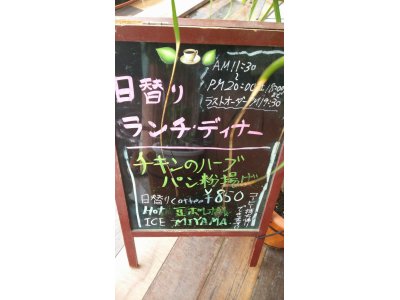 AM11:30
~
PM20:00
ラストオーダー 19:30
日替り
ランチ・ディナー
チキンのハーブ
パン粉揚げ
日替りcoffee ¥850
Hot
ICE MIYAMA